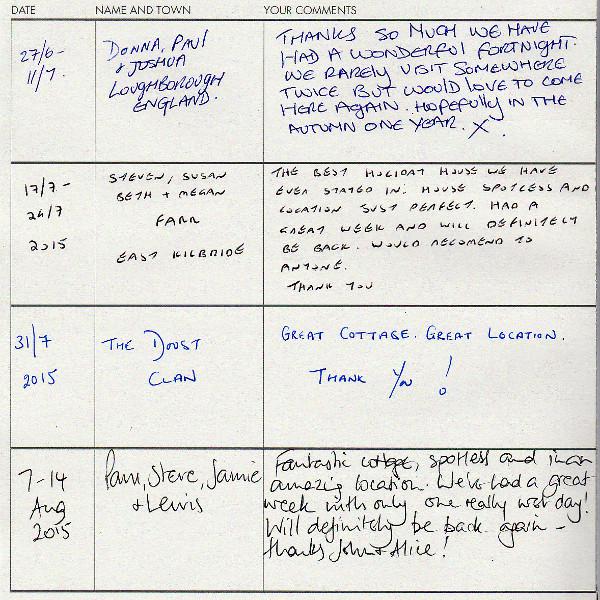 DATE NAME AND TOWN YOUR COMMENTS
27/6-
11/7.
DONNA, PAUl
+ JOSHUA
LOUGHBOROUGH
ENGLAND.
THANKS SO MUCH WE HAVE
HAD A WONDERFUl FORTNIGHT.
WE RARELY VISIT SOMEWHERE
TWICE BUT WOULD LOVE TO COME
HERE AGAIN. HOPEFULLY IN THE
AUTUMN ONE YEAR. X.
17/7-
24/7
2015
STEVEN, SUSAN
BETH + MEGAN
FARR
EAST KILBRIDE
THE BEST HOLIDAY HOUSE WE HAVE
EVER STAYED IN. HOUSE SPOTLESS AND
LOCATION JUST PERFECT. HAD A
GREAT WEEK AND WILL DEFINITELY
BE BACK. WOULD RECOMEND TO
ANYONE.
THANK YOU
31/7
2015
THE DOUST
CLAN
GREAT COTTAGE. GREAT LOCATION.
THANK YOU !
7-14
Aug
2015
Pam, Steve, Jamie
+ Lewis
Fantastic cottage, spotless and in an
amazing location. We've had a great
week with only one really wet day!
Will definitely be back again -
thanks John + Alice!